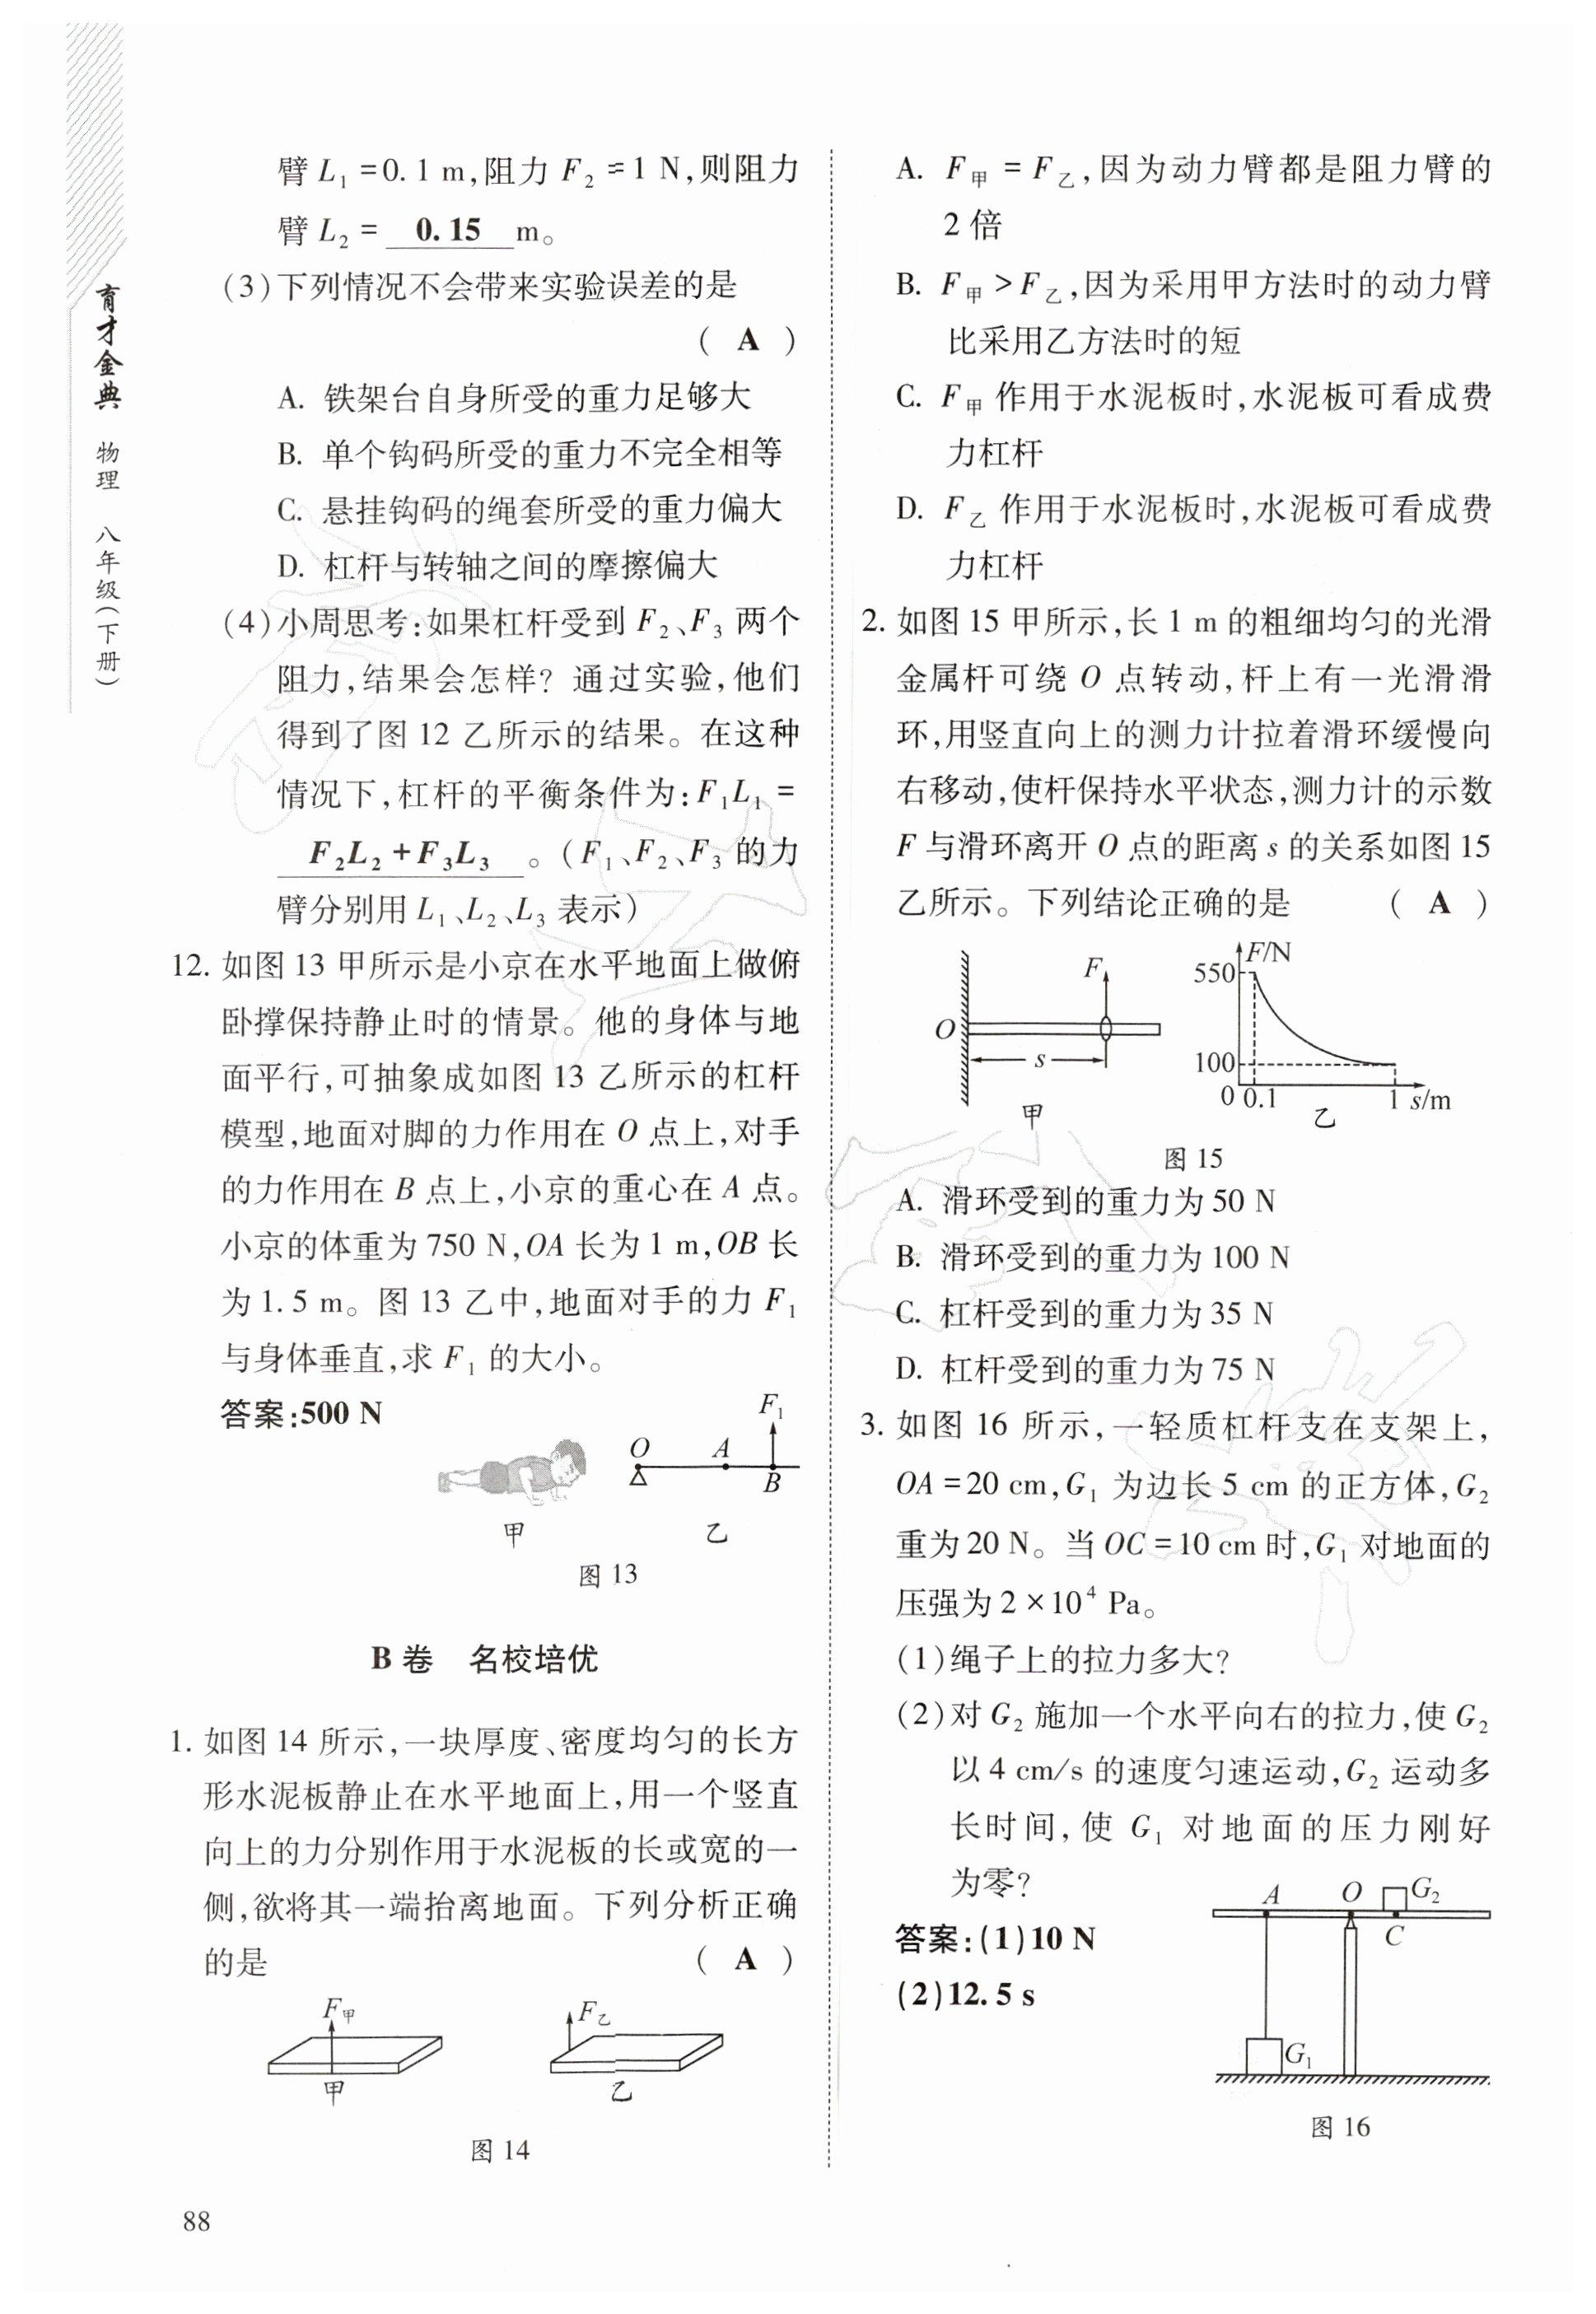 育才金典 物理 八年级(下册)
臂 L₁ =0. 1 m,阻力 F₂ =1 N,则阻力
臂 L₂ = 0. 15 m。
(3)下列情况不会带来实验误差的是
( A )
A. 铁架台自身所受的重力足够大
B. 单个钩码所受的重力不完全相等
C. 悬挂钩码的绳套所受的重力偏大
D. 杠杆与转轴之间的摩擦偏大
(4)小周思考:如果杠杆受到 F₂、F₃ 两个
阻力,结果会怎样? 通过实验,他们
得到了图 12 乙所示的结果。在这种
情况下,杠杆的平衡条件为:F₁L₁ =
F₂L₂ +F₃L₃ 。(F₁、F₂、F₃ 的力
臂分别用 L₁、L₂、L₃ 表示)
12. 如图 13 甲所示是小京在水平地面上做俯
卧撑保持静止时的情景。他的身体与地
面平行,可抽象成如图 13 乙所示的杠杆
模型,地面对脚的力作用在 O 点上,对手
的力作用在 B 点上,小京的重心在 A 点。
小京的体重为 750 N,OA 长为 1 m,OB 长
为 1. 5 m。图 13 乙中,地面对手的力 F₁
与身体垂直,求 F₁ 的大小。
答案:500 N
F₁
O A
B
甲 乙
图 13
B 卷 名校培优
1. 如图 14 所示,一块厚度、密度均匀的长方
形水泥板静止在水平地面上,用一个竖直
向上的力分别作用于水泥板的长或宽的一
侧,欲将其一端抬离地面。下列分析正确
的是 ( A )
F甲 F乙
甲 乙
图 14
88
A. F甲 = F乙,因为动力臂都是阻力臂的
2 倍
B. F甲 >F乙,因为采用甲方法时的动力臂
比采用乙方法时的短
C. F甲 作用于水泥板时,水泥板可看成费
力杠杆
D. F乙 作用于水泥板时,水泥板可看成费
力杠杆
2. 如图 15 甲所示,长 1 m 的粗细均匀的光滑
金属杆可绕 O 点转动,杆上有一光滑滑
环,用竖直向上的测力计拉着滑环缓慢向
右移动,使杆保持水平状态,测力计的示数
F 与滑环离开 O 点的距离 s 的关系如图 15
乙所示。下列结论正确的是 ( A )
F
O
s
甲
F/N
550
100
0 0.1 1 s/m
乙
图 15
A. 滑环受到的重力为 50 N
B. 滑环受到的重力为 100 N
C. 杠杆受到的重力为 35 N
D. 杠杆受到的重力为 75 N
3. 如图 16 所示,一轻质杠杆支在支架上,
OA =20 cm,G₁ 为边长 5 cm 的正方体,G₂
重为 20 N。当 OC =10 cm 时,G₁ 对地面的
压强为 2 ×10⁴ Pa。
(1)绳子上的拉力多大?
(2)对 G₂ 施加一个水平向右的拉力,使 G₂
以 4 cm/s 的速度匀速运动,G₂ 运动多
长时间,使 G₁ 对地面的压力刚好
为零?
答案:(1)10 N
(2)12. 5 s
A O G₂
C
G₁
图 16